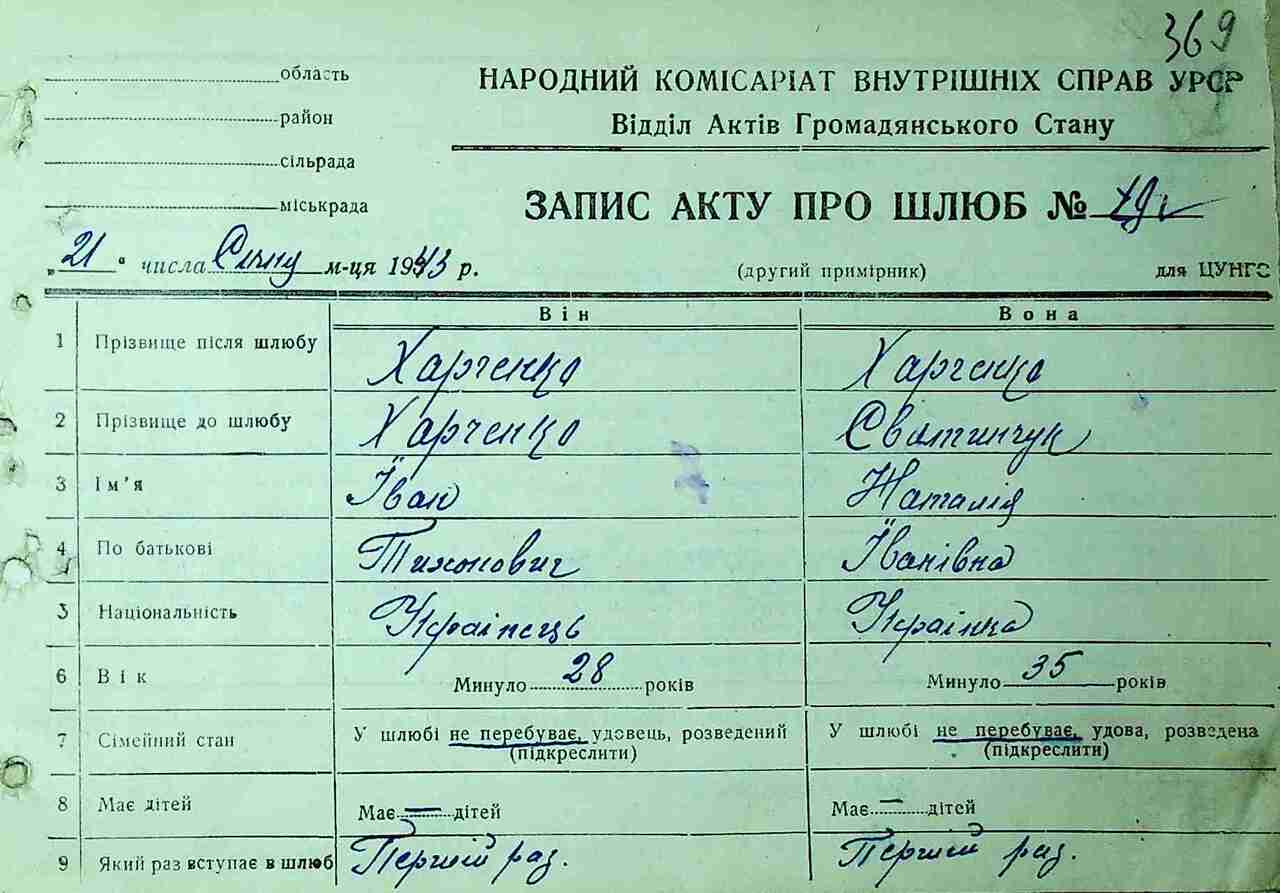 369
область
район
сільрада
міськрада
НАРОДНИЙ КОМІСАРІАТ ВНУТРІШНІХ СПРАВ УРСР
Відділ Актів Громадянського Стану
ЗАПИС АКТУ ПРО ШЛЮБ №
„21" числа Січня м-ця 1943 р.
(другий примірник) для ЦУНГО
Він Вона
1 Прізвище після шлюбу Харченко Харченко
2 Прізвище до шлюбу Харченко Сватинчук
3 Ім'я Іван Наталія
4 По батькові Тихонович Іванівна
5 Національність Українець Українка
6 Вік Минуло 28 років Минуло 35 років
7 Сімейний стан У шлюбі не перебуває, удовець, розведений У шлюбі не перебуває, удова, розведена
(підкреслити) (підкреслити)
8 Має дітей Має — дітей Має — дітей
9 Який раз вступає в шлюб Перший раз. Перший раз.